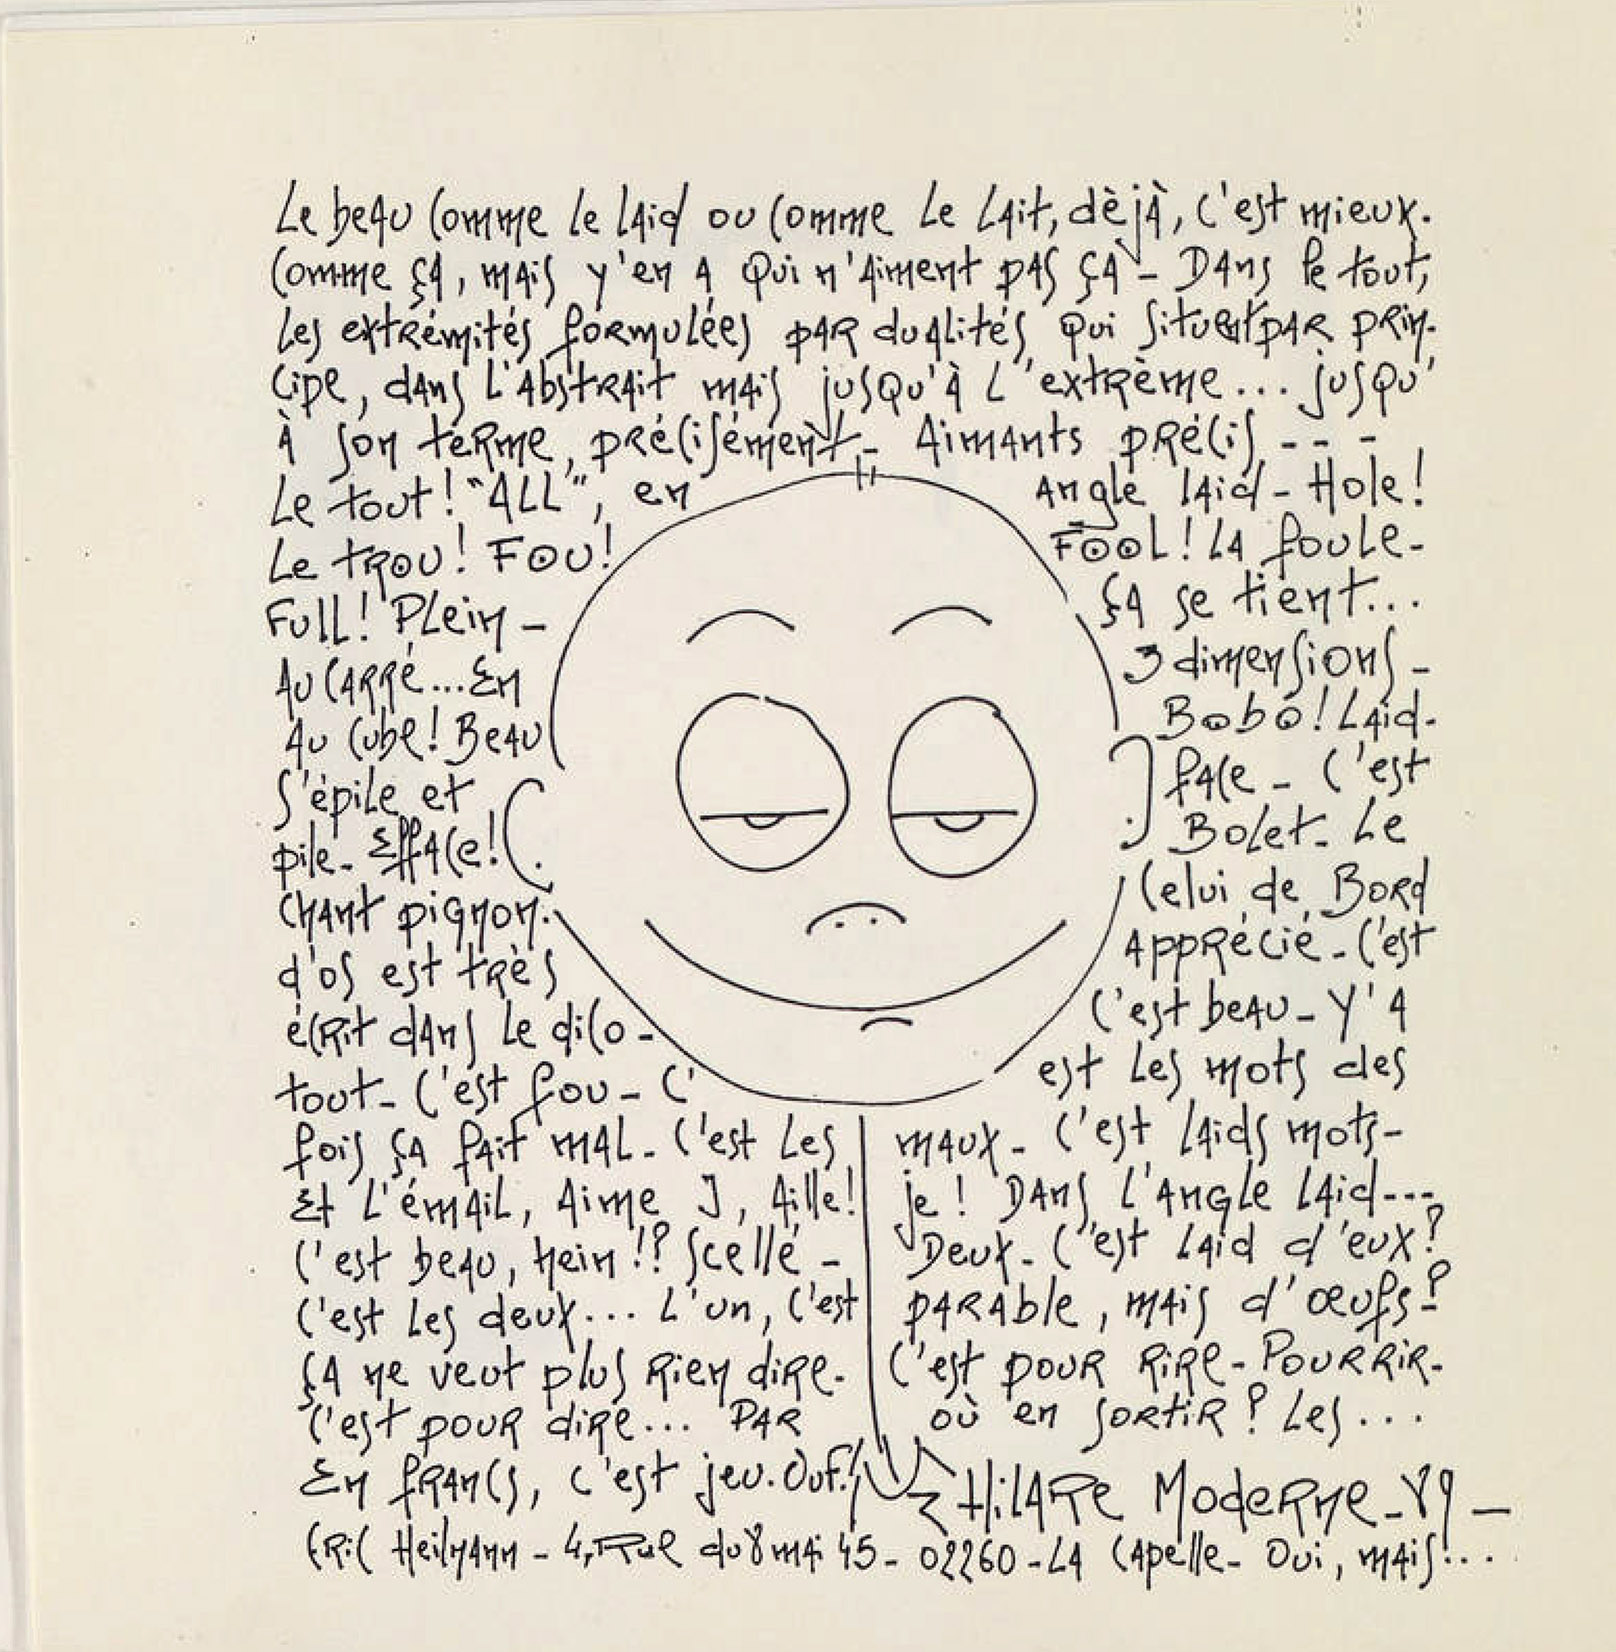 Le beau comme le laid ou comme le lait, dèjà, c'est mieux.
Comme ça, mais y'en a qui n'aiment pas ça - Dans le tout,
les extrémités formulées par dualités, qui situent par prin-
cipe, dans l'abstrait mais jusqu'à l'extrème... jusqu'
à son terme, précisément - Aimants précis - - -
Le tout! "ALL", en angle laid - Hole!
Le trou! FOU! FOOL! La foule -
Full! Plein - ça se tient...
Au carré... En 3 dimensions -
Au cube! Beau Bobo! Laid.
S'épile et face - C'est
pile - Efface! Bolet - Le
chant pignon. Celui de Bord
d'os est très apprécié - C'est
écrit dans le dico - C'est beau - Y'a
tout - C'est fou - C' est les mots des
fois ça fait mal - C'est les maux - C'est laids mots -
Et l'émail, aime J, aille! je! Dans l'angle laid ---
C'est beau, hein!? Scellé - Deux - C'est laid d'eux?
C'est les deux... L'un, c'est parable, mais d'œufs?
ça ne veut plus rien dire - C'est pour rire - Pourrir -
C'est pour dire... Par où en sortir? Les...
En francs, c'est jeu. Ouf! Hilare Moderne - 89 -
Eric Heilmann - 4, rue du 8 mai 45 - 02260 - La Capelle - Oui, mais!...